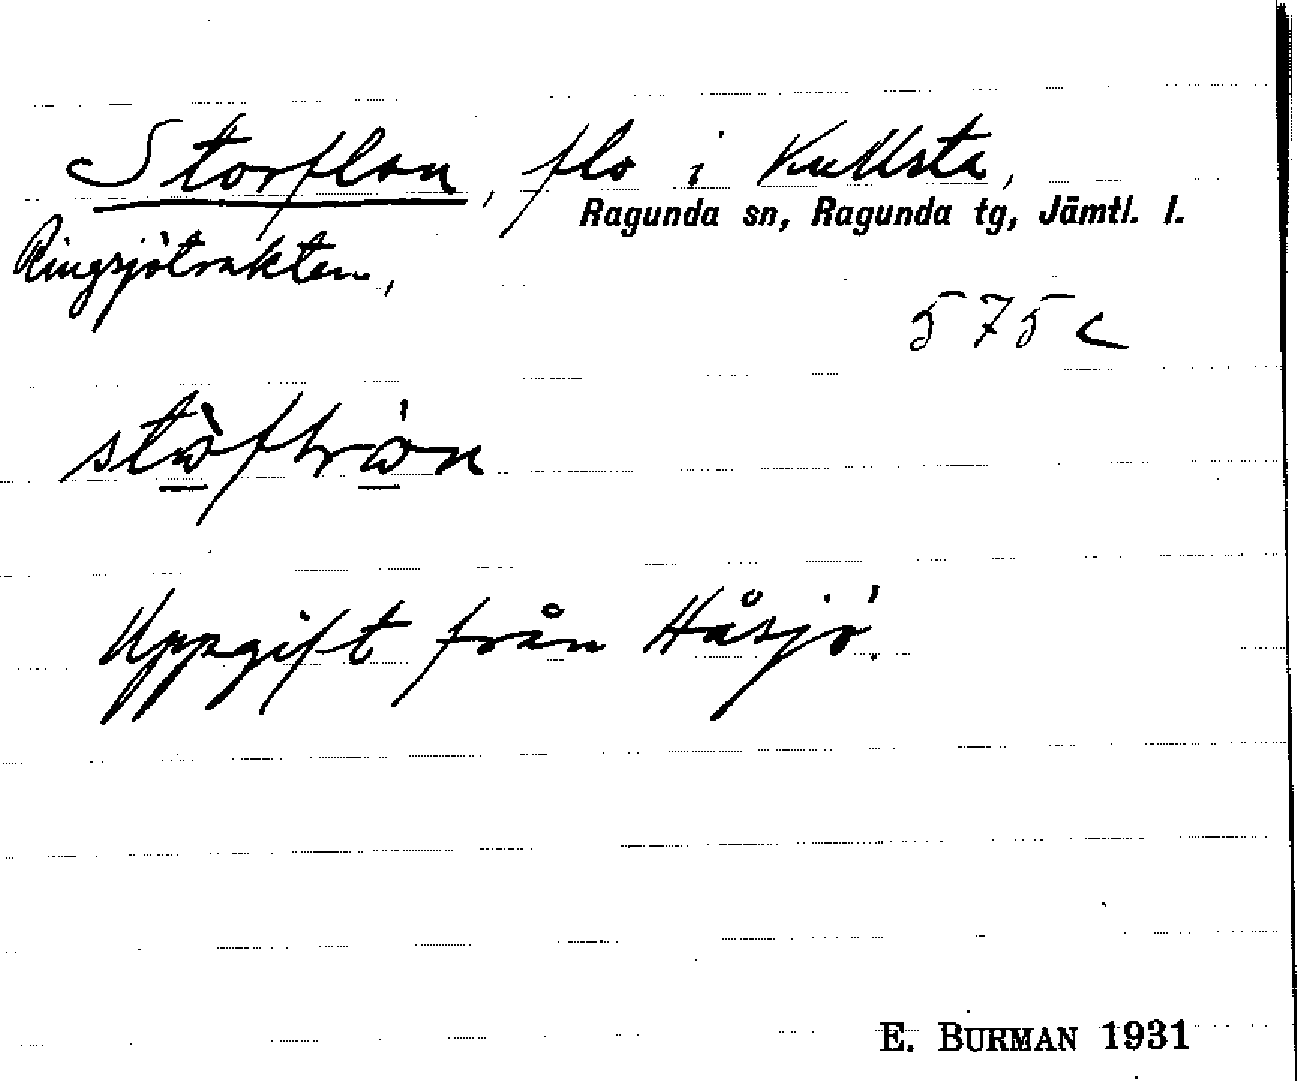 Storflon, flo i Kullsta,
Ragunda sn, Ragunda tg, Jämtl. l.
Ringsjötrakten,
575 c
Uppgift från Håsjö.
E. BURMAN 1931